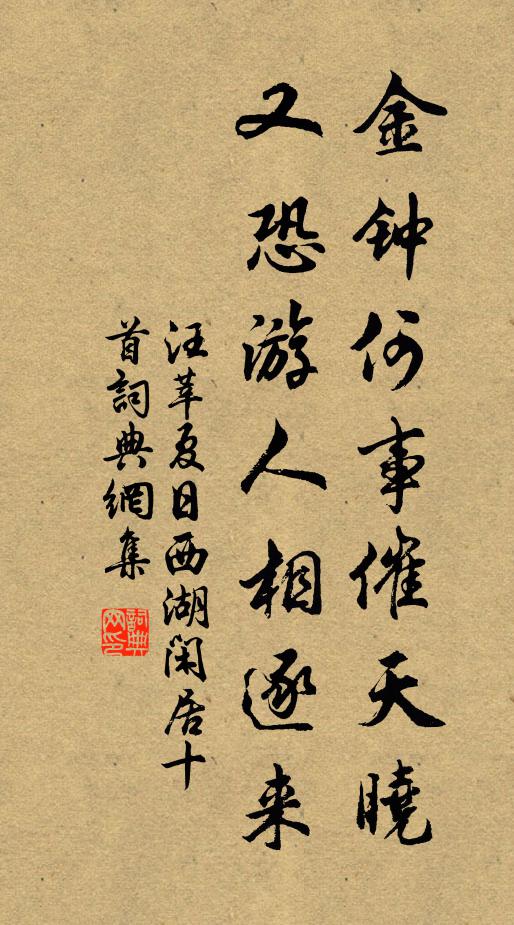 金钟何事催天曉
又恐游人相逐来
汪莘夏日西湖閑居十
首詞典網集
詞典网印